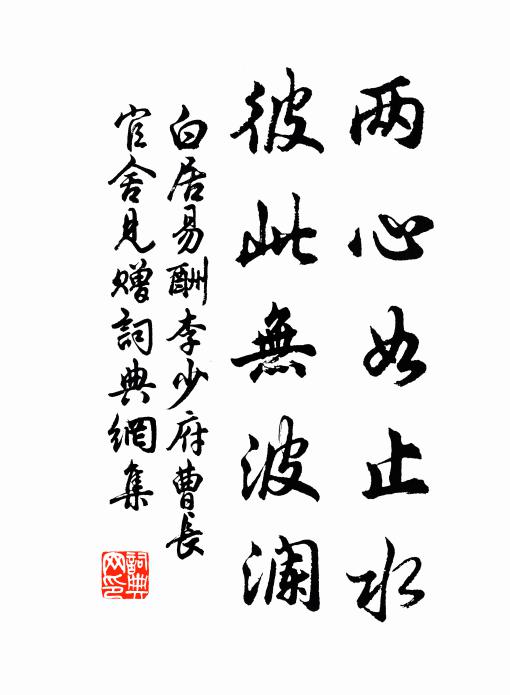 两心如止水
彼此無波澜
白居易酬李少府曹長
官舍見赠詞典網集
詞典
网印